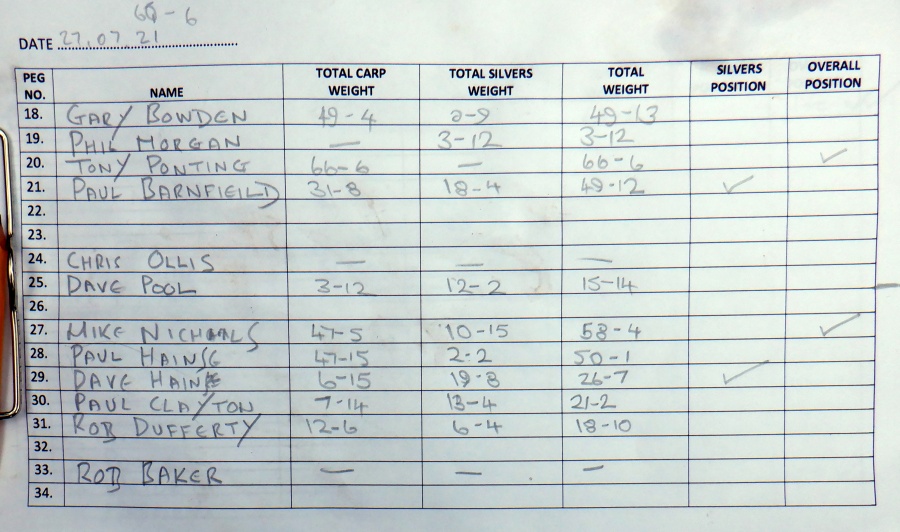 6 - 6
DATE 27.07.21
PEG NO. NAME TOTAL CARP WEIGHT TOTAL SILVERS WEIGHT TOTAL WEIGHT SILVERS POSITION OVERALL POSITION
18. GARY BOWDEN 49-4 0-9 49-13
19. PHIL MORGAN — 3-12 3-12
20. TONY PONTING 66-6 — 66-6 ✓
21. PAUL BARNFEILD 31-8 18-4 49-12 ✓
22.
23.
24. CHRIS OLLIS — — —
25. DAVE POOL 3-12 12-2 15-14
26.
27. MIKE NICHOLLS 47-5 10-15 58-4 ✓
28. PAUL HAINSE 47-15 2-2 50-1
29. DAVE 6-15 19-8 26-7 ✓
30. PAUL CLAYTON 7-14 13-4 21-2
31. ROB DUFFERTY 12-6 6-4 18-10
32.
33. ROB BAKER — — —
34.